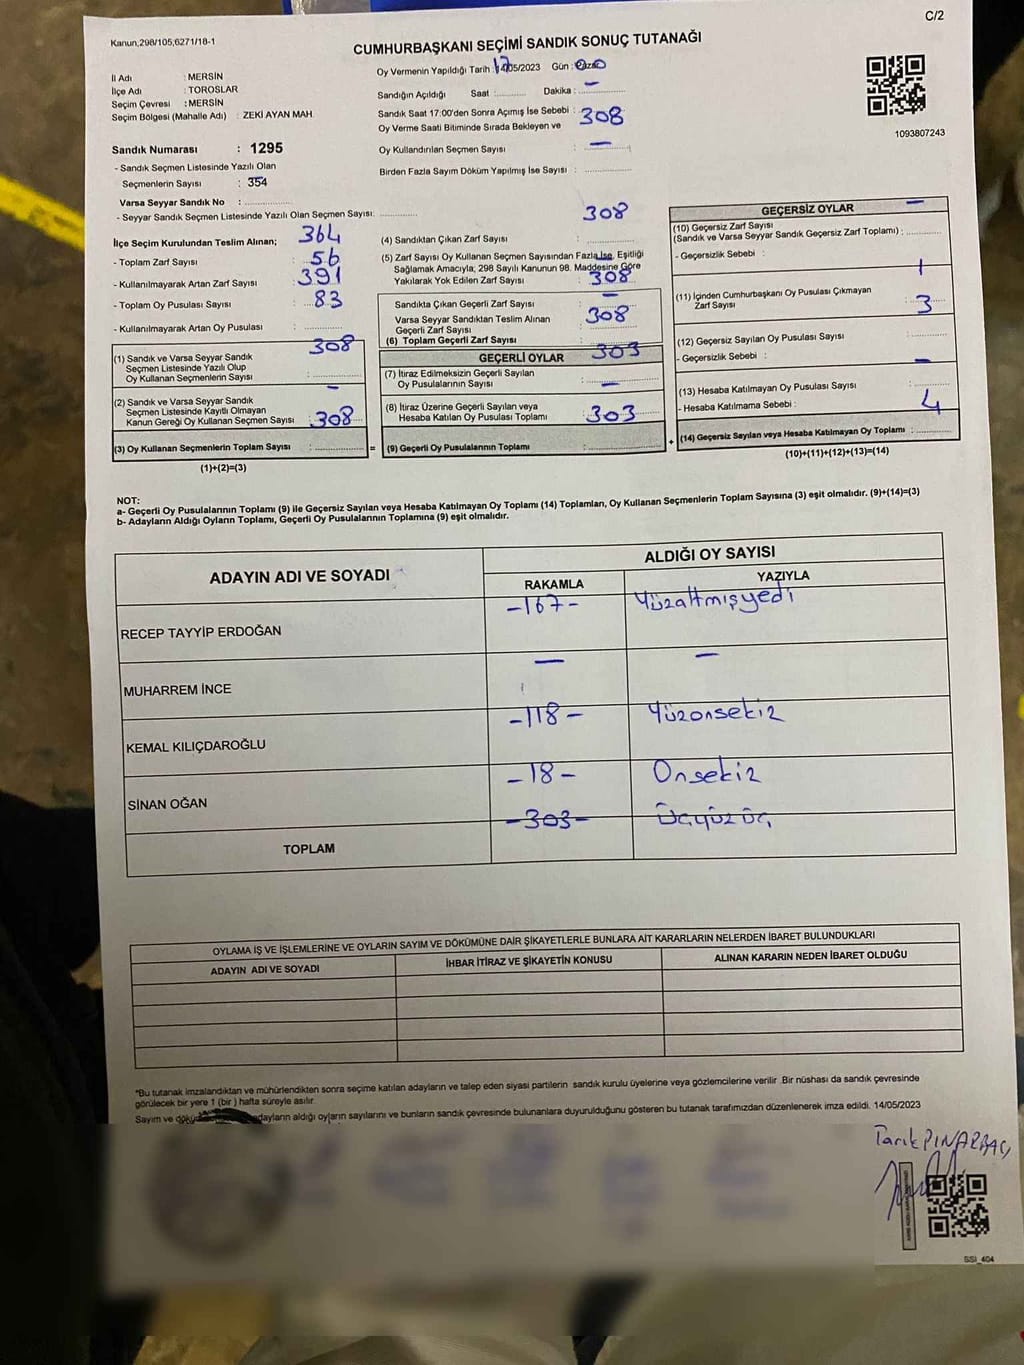 C/2
Kanun,298/105,6271/18-1
CUMHURBAŞKANI SEÇİMİ SANDIK SONUÇ TUTANAĞI
İl Adı : MERSİN
İlçe Adı : TOROSLAR
Seçim Çevresi : MERSİN
Seçim Bölgesi (Mahalle Adı) : ZEKİ AYAN MAH.
Sandık Numarası : 1295
- Sandık Seçmen Listesinde Yazılı Olan
Seçmenlerin Sayısı : 354
Varsa Seyyar Sandık No :
- Seyyar Sandık Seçmen Listesinde Yazılı Olan Seçmen Sayısı:
İlçe Seçim Kurulundan Teslim Alınan; 364
- Toplam Zarf Sayısı : 56
- Kullanılmayarak Artan Zarf Sayısı : 391
- Toplam Oy Pusulası Sayısı : 83
- Kullanılmayarak Artan Oy Pusulası :
308
(1) Sandık ve Varsa Seyyar Sandık
Seçmen Listesinde Yazılı Olup
Oy Kullanan Seçmenlerin Sayısı :
-
(2) Sandık ve Varsa Seyyar Sandık
Seçmen Listesinde Kayıtlı Olmayan
Kanun Gereği Oy Kullanan Seçmen Sayısı : 308
(3) Oy Kullanan Seçmenlerin Toplam Sayısı : =
(1)+(2)=(3)
Oy Vermenin Yapıldığı Tarih : /05/2023 Gün :
Sandığın Açıldığı Saat : Dakika : -
Sandık Saat 17:00'den Sonra Açımış İse Sebebi :
Oy Verme Saati Bitiminde Sırada Bekleyen ve 308
Oy Kullandırılan Seçmen Sayısı : -
Birden Fazla Sayım Döküm Yapılmış İse Sayısı :
308
(4) Sandıktan Çıkan Zarf Sayısı :
(5) Zarf Sayısı Oy Kullanan Seçmen Sayısından Fazla İse, Eşitliği
Sağlamak Amacıyla, 298 Sayılı Kanunun 98. Maddesine Göre
Yakılarak Yok Edilen Zarf Sayısı : 308
-
Sandıkta Çıkan Geçerli Zarf Sayısı :
Varsa Seyyar Sandıktan Teslim Alınan 308
Geçerli Zarf Sayısı :
(6) Toplam Geçerli Zarf Sayısı :
GEÇERLİ OYLAR 303
(7) İtiraz Edilmeksizin Geçerli Sayılan
Oy Pusulalarının Sayısı : -
(8) İtiraz Üzerine Geçerli Sayılan veya
Hesaba Katılan Oy Pusulası Toplamı : 303
(9) Geçerli Oy Pusulalarının Toplamı : +
1093807243
GEÇERSİZ OYLAR -
(10) Geçersiz Zarf Sayısı
(Sandık ve Varsa Seyyar Sandık Geçersiz Zarf Toplamı) :
- Geçersizlik Sebebi :
1
(11) İçinden Cumhurbaşkanı Oy Pusulası Çıkmayan
Zarf Sayısı : 3
(12) Geçersiz Sayılan Oy Pusulası Sayısı :
- Geçersizlik Sebebi : -
(13) Hesaba Katılmayan Oy Pusulası Sayısı :
- Hesaba Katılmama Sebebi : 4
(14) Geçersiz Sayılan veya Hesaba Katılmayan Oy Toplamı :
(10)+(11)+(12)+(13)=(14)
NOT:
a- Geçerli Oy Pusulalarının Toplamı (9) ile Geçersiz Sayılan veya Hesaba Katılmayan Oy Toplamı (14) Toplamları, Oy Kullanan Seçmenlerin Toplam Sayısına (3) eşit olmalıdır. (9)+(14)=(3)
b- Adayların Aldığı Oyların Toplamı, Geçerli Oy Pusulalarının Toplamına (9) eşit olmalıdır.
ADAYIN ADI VE SOYADI
ALDIĞI OY SAYISI
RAKAMLA YAZIYLA
RECEP TAYYİP ERDOĞAN -167- Yüzaltmışyedi
MUHARREM İNCE - -
KEMAL KILIÇDAROĞLU -118- Yüzonsekiz
SİNAN OĞAN -18- Onsekiz
TOPLAM -303- Üçyüzüç
OYLAMA İŞ VE İŞLEMLERİNE VE OYLARIN SAYIM VE DÖKÜMÜNE DAİR ŞİKAYETLERLE BUNLARA AİT KARARLARIN NELERDEN İBARET BULUNDUKLARI
ADAYIN ADI VE SOYADI İHBAR İTİRAZ VE ŞİKAYETİN KONUSU ALINAN KARARIN NEDEN İBARET OLDUĞU
*Bu tutanak imzalandıktan ve mühürlendikten sonra seçime katılan adayların ve talep eden siyasi partilerin sandık kurulu üyelerine veya gözlemcilerine verilir .Bir nüshası da sandık çevresinde
görülecek bir yere 1 (bir ) hafta süreyle asılır.
Sayım ve adayların aldığı oyların sayılarını ve bunların sandık çevresinde bulunanlara duyurulduğunu gösteren bu tutanak tarafımızdan düzenlenerek imza edildi. 14/05/2023
Tarık PINARBAŞI
SSI_404